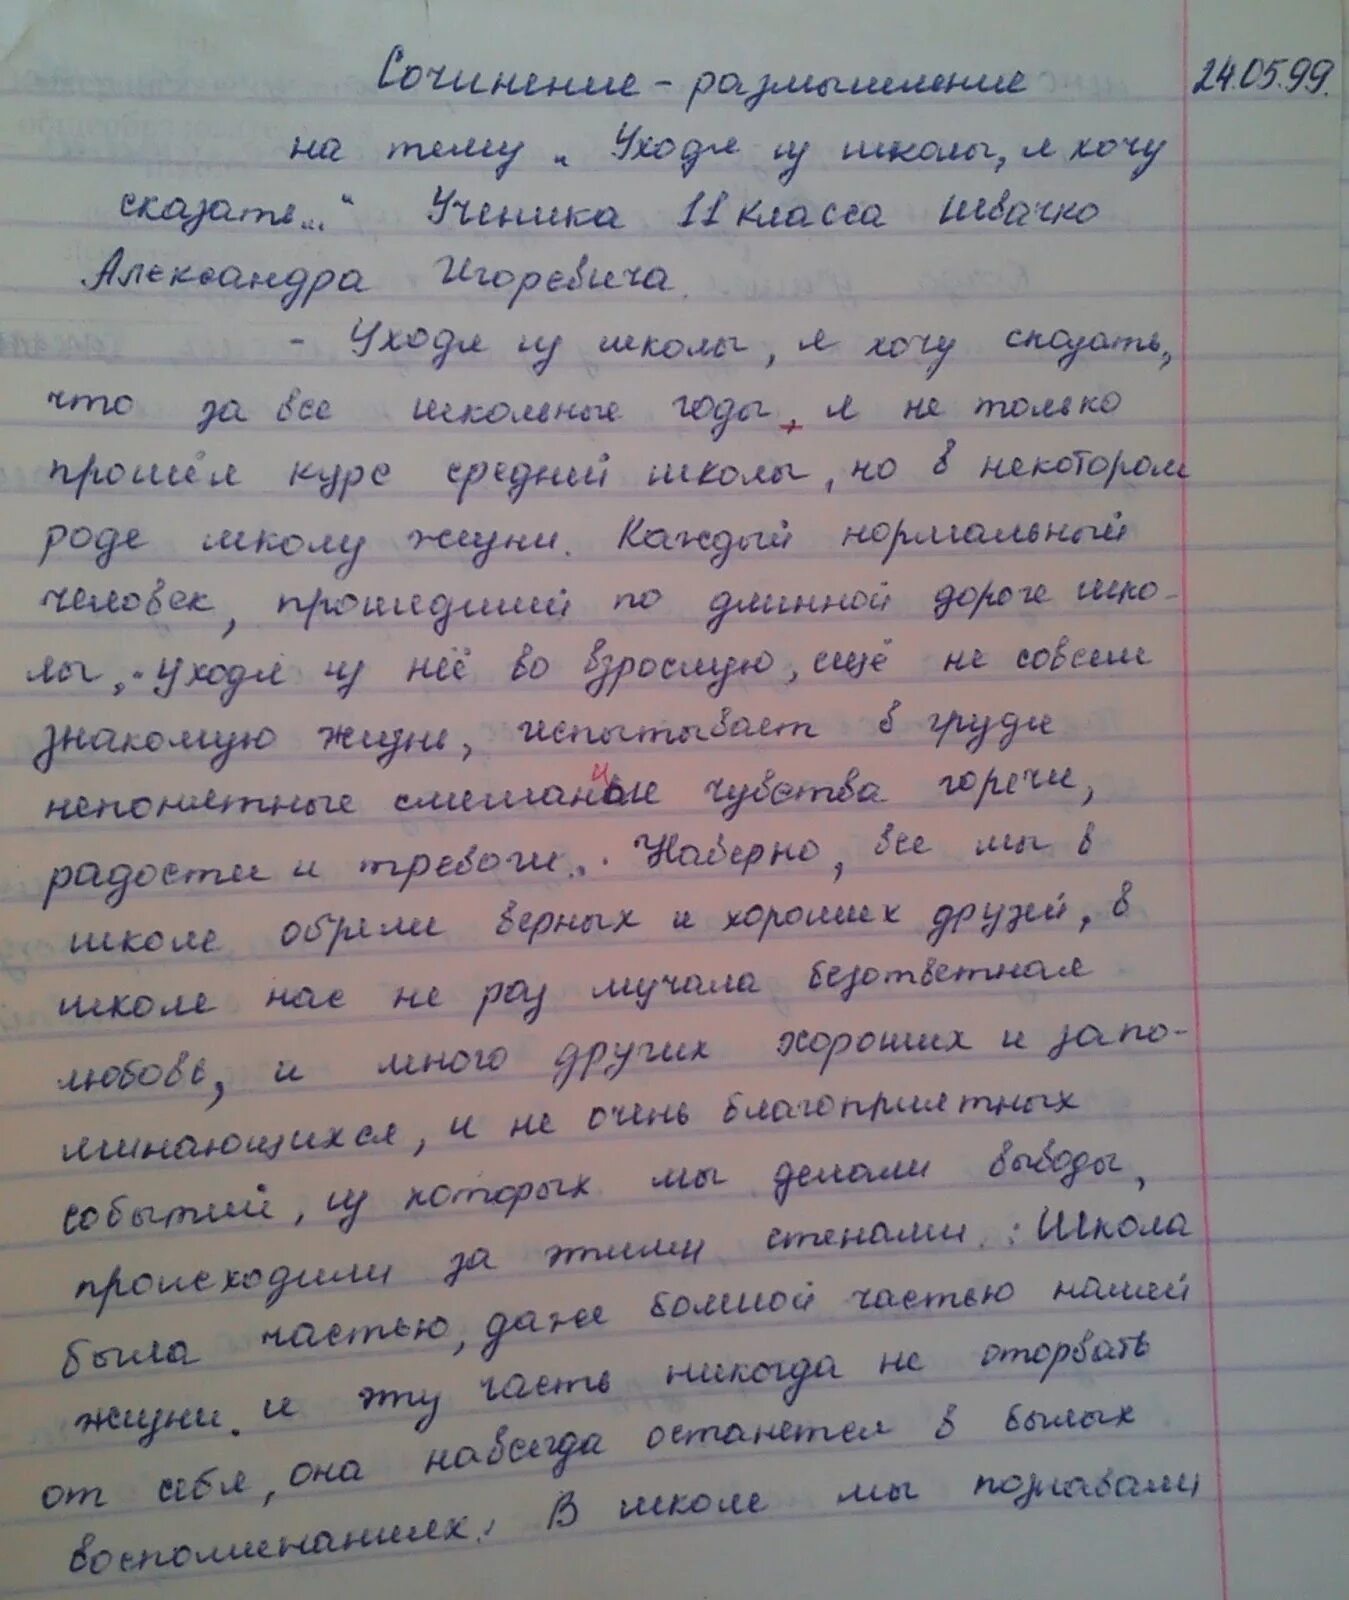 Сочинение - размышление 24.05.99.
на тему „ Уходя из школы, я хочу
сказать..." Ученика 11 класса Швачко
Александра Игоревича.
- Уходя из школы, я хочу сказать,
что за все школьные годы, я не только
прошёл курс средней школы, но в некотором
роде школу жизни. Каждый нормальный
человек, прошедший по длинной дороге шко-
лы, уходя из неё во взрослую, ещё не совсем
знакомую жизнь, испытывает в груди
непонятные смешанные чувства горечи,
радости и тревоги. Наверно, все мы в
школе обрели верных и хороших друзей, в
школе нас не раз мучала безответная
любовь, и много других хороших и запо-
минающихся, и не очень благоприятных
событий, из которых мы делали выводы,
происходили за этими стенами. Школа
была частью, даже большой частью нашей
жизни и эту часть никогда не оторвать
от себя, она навсегда останется в былых
воспоминаниях. В школе мы познавали